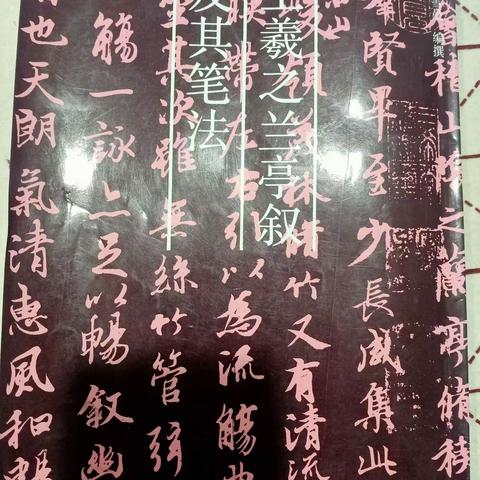 编撰
王羲之兰亭叙
及其笔法
會稽山陰之蘭亭脩稧
群賢畢至少長咸集此
山峻領茂林脩竹又有清流
暎帶左右引以為流觴曲
坐其次雖無絲竹管弦
觴一詠亦足以暢叙幽
也天朗氣清惠風和暢